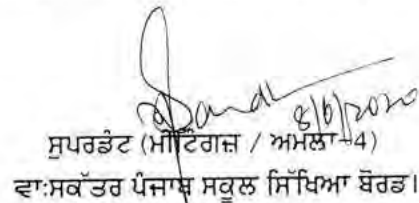 8/6/2020
ਸੁਪਰਡੰਟ (ਮੀਟਿੰਗਜ਼ / ਅਮਲਾ-4)
ਵਾ:ਸਕੱਤਰ ਪੰਜਾਬ ਸਕੂਲ ਸਿੱਖਿਆ ਬੋਰਡ।